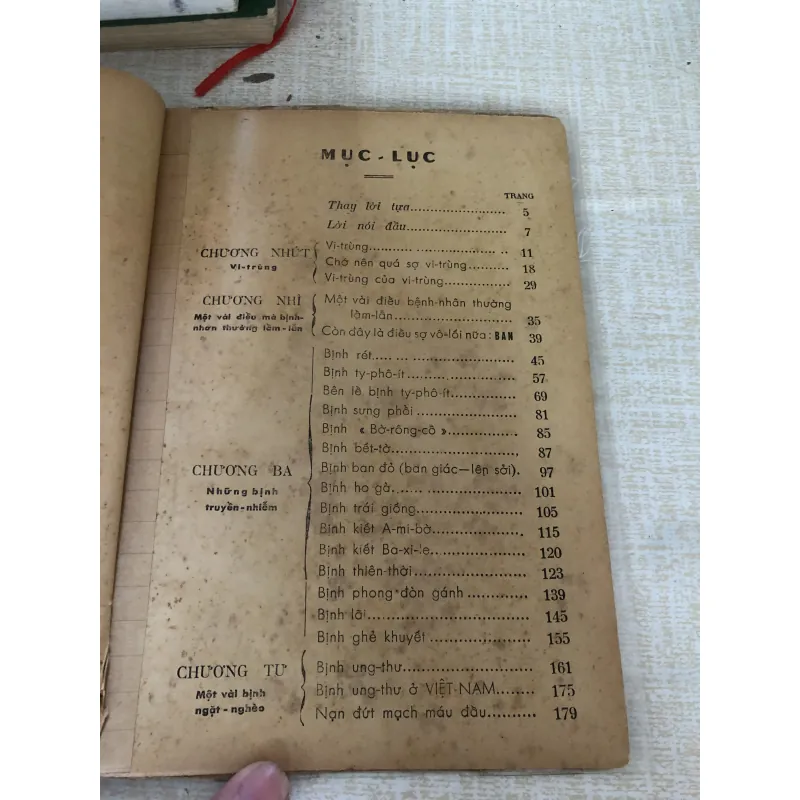 MỤC - LỤC
TRANG
Thay lời tựa........................ 5
Lời nói đầu......................... 7
CHƯƠNG NHỨT
Vi-trùng
Vi-trùng........... .................. .. 11
Chớ nên quá sợ vi-trùng........... 18
Vi-trùng của vi-trùng................. 29
CHƯƠNG NHÌ
Một vài điều mà bịnh-
nhơn thường lầm-lẫn
Một vài điều bệnh-nhân thường
lầm-lẫn.............................. 35
Còn đây là điều sợ vô-lối nữa : BAN 39
CHƯƠNG BA
Những bịnh
truyền-nhiễm
Bịnh rét..... ... ...................... 45
Bịnh ty-phô-ít........................ 57
Bên lề bịnh ty-phô-ít................ 69
Bịnh sưng phổi ...................... 81
Bịnh « Bờ-rông-cô »................. 85
Bịnh bết-tờ........................... 87
Bịnh ban đỏ (ban giác—lên sởi). 97
Bịnh ho gà........................... 101
Bịnh trái giống....................... 105
Bịnh kiết A-mi-bờ.................... 115
Bịnh kiết Ba-xi-le................... 120
Bịnh thiên-thời....................... 123
Bịnh phong đòn gánh ............. 139
Bịnh lãi................................. 145
Bịnh ghẻ khuyết ..................... 155
CHƯƠNG TƯ
Một vài bịnh
ngặt - nghèo
Bịnh ung-thư.......................... 161
Bịnh ung-thư ở VIỆT-NAM........ 175
Nạn đứt mạch máu đầu.......... 179